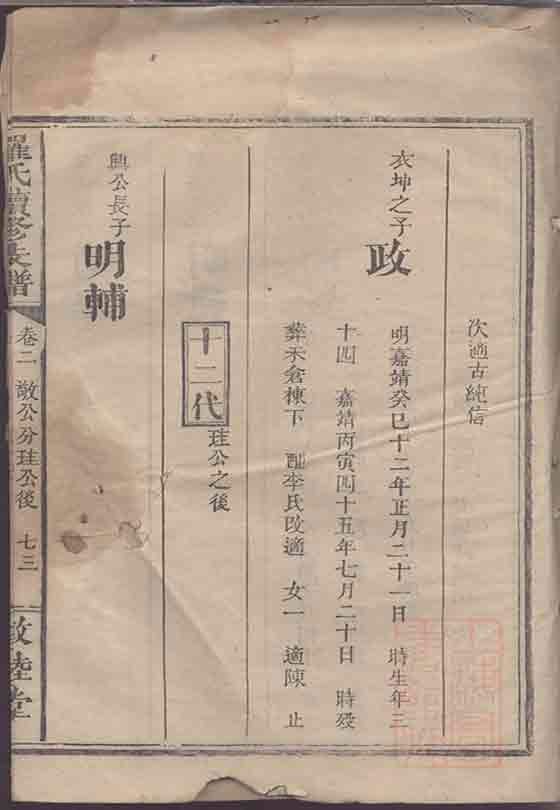 次適古純信
衣坤之子
政
明嘉靖癸巳十二年正月二十一日 時生年三
十四 嘉靖丙寅四十五年七月二十日 時歿
葬禾倉棟下 配李氏改適 女一 適陳 止
十二代
珪公之後
興公長子
明輔
羅氏續修族譜
卷二 敬公分珪公後 七三
敦睦堂